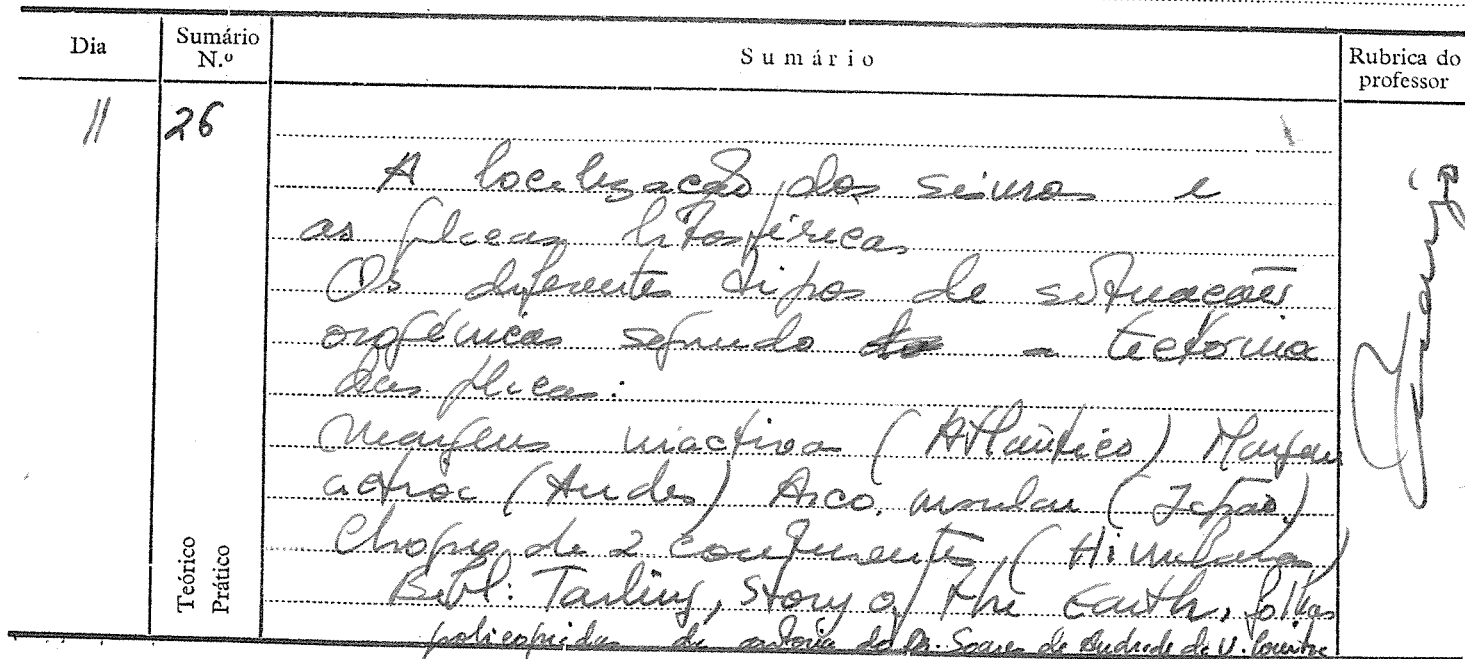 Dia
Sumário N.º
Sumário
Rubrica do professor
11
26
A localização dos sismos e
as placas litosféricas
Os diferentes tipos de situações
orogénicas segundo a tectónica
das placas:
Margens inactivas (Atlântico) Margem
activa (Andes) Arco insular (Japão)
Choque de 2 continentes (Himalaias)
Bibl: Tarling, Story of the Earth, folhas
policopiadas de autoria do Dr. Soares de Andrade da U. Coimbra
Teórico
Prático